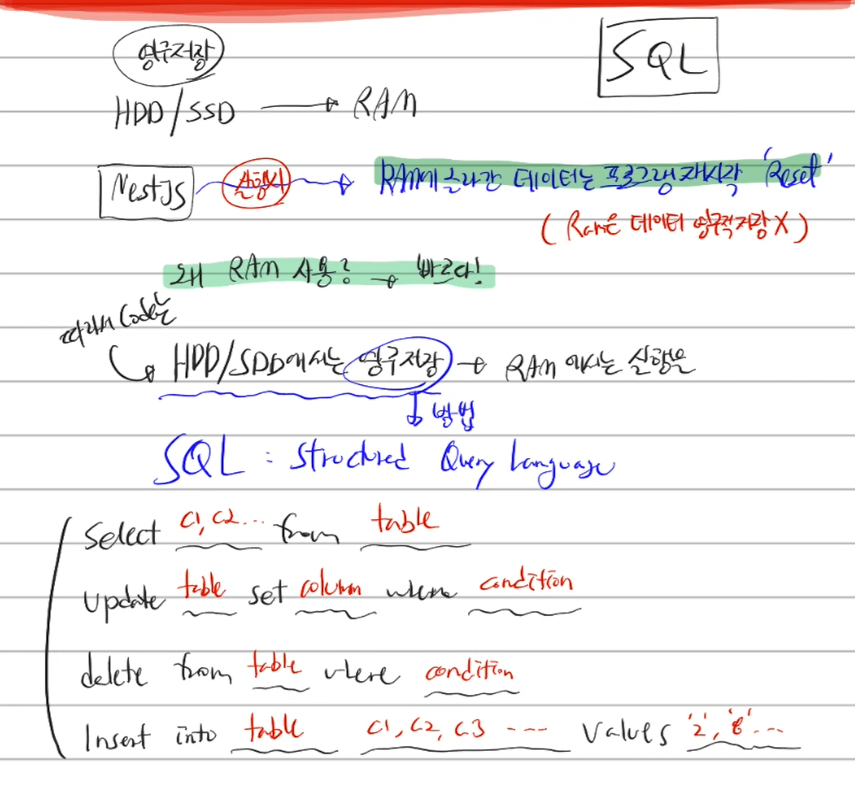 영구저장
SQL
HDD/SSD → RAM
NestJS 실행시 → RAM에 올라간 데이터는 프로그램 재시작 'Reset'
(Ram은 데이터 영구적 저장 X)
왜 RAM 사용? → 빠르다!
따라서 Code는
HDD/SDD에서는 영구저장 → RAM에서는 실행은
↓ 방법
SQL : Structured Query Language
Select C1, C2... from table
Update table set column where condition
delete from table where condition
Insert into table C1, C2, C3 --- Values '2', '8'...